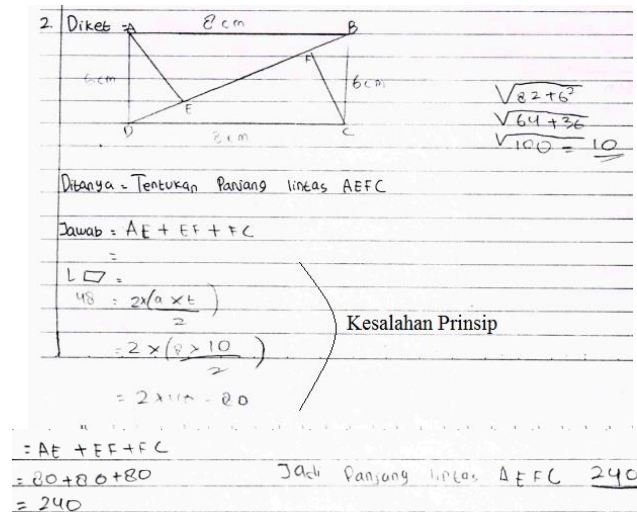 2. Diket = A 8 cm B
6 cm E F 6 cm
D 8 cm C
√82+6²
√64+36
√100 = 10
Ditanya = Tentukan Panjang lintas AEFC
Jawab = AE + EF + FC
=
L ▱ =
48 = 2x(a x t / 2)
= 2 x (8 x 10 / 2)
= 2 x 80
Kesalahan Prinsip
= AE + EF + FC
= 80+80+80 Jadi Panjang lintas AEFC 240
= 240